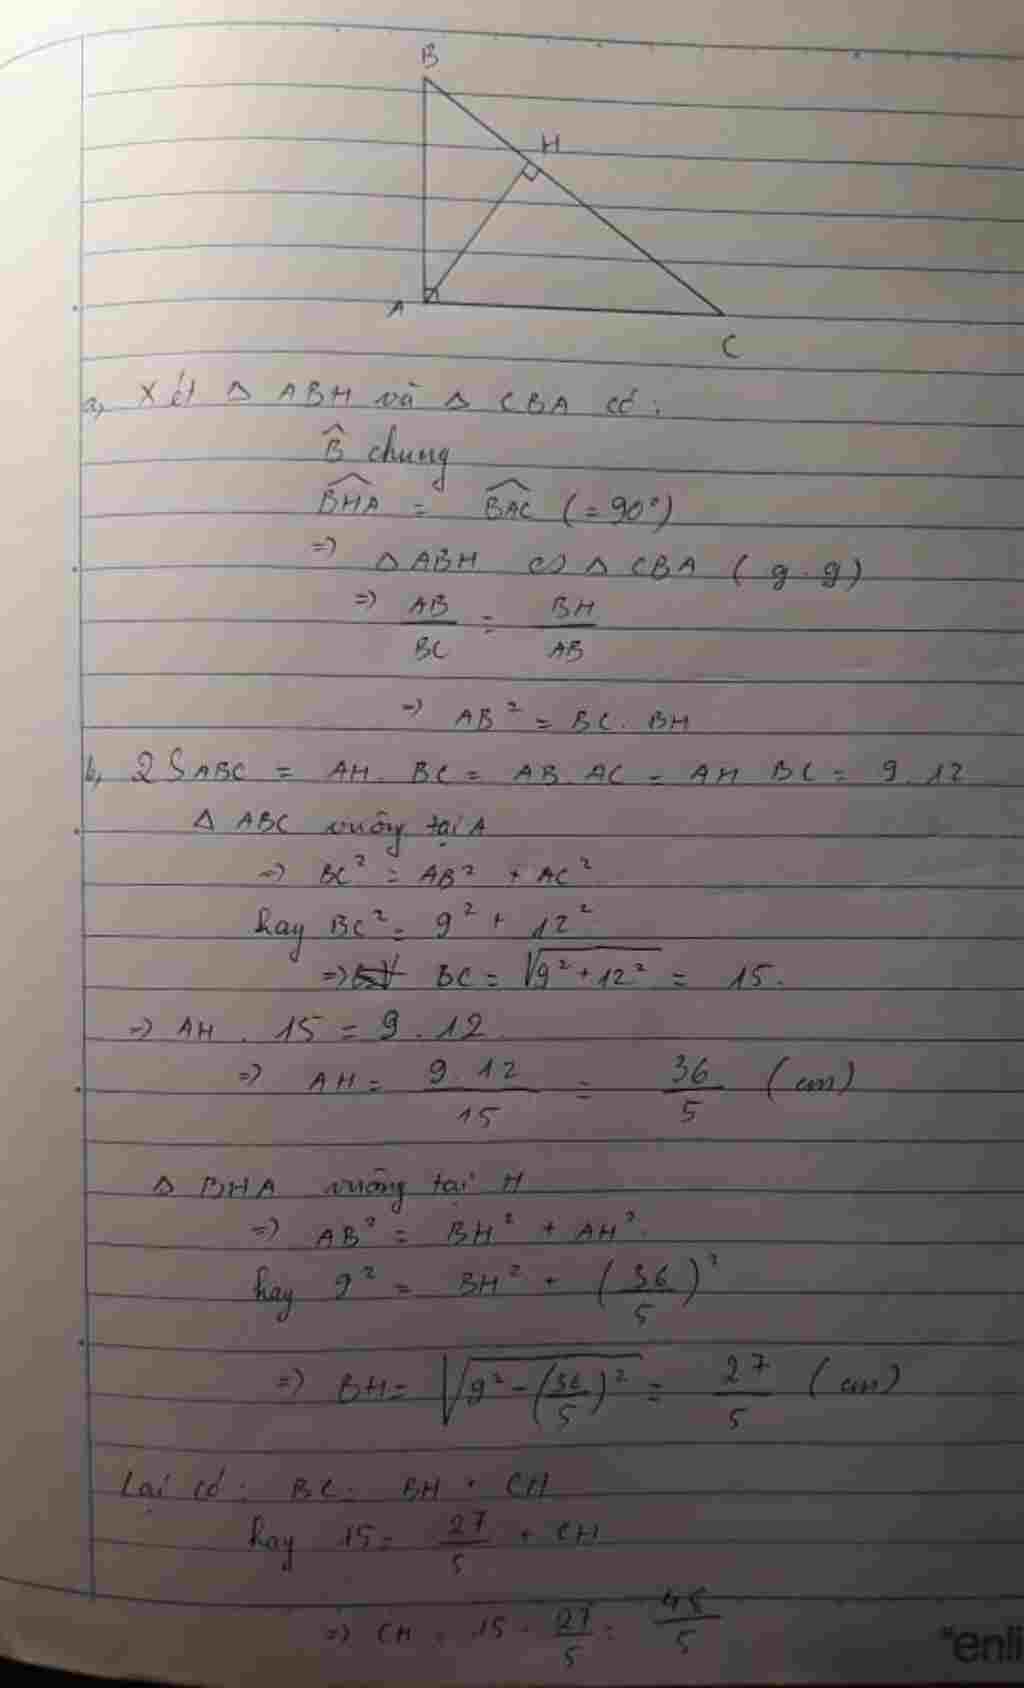 B
H
A
C
a, Xét Δ ABH và Δ CBA có :
B̂ chung
BHA = BAC (= 90°)
=> Δ ABH ∽ Δ CBA ( g . g)
=> AB/BC = BH/AB
=> AB² = BC . BH
b, 2 SABC = AH . BC = AB . AC = AH . BC = 9 . 12
Δ ABC vuông tại A
=> BC² = AB² + AC²
hay BC² = 9² + 12²
=> BC = √(9² + 12²) = 15.
=> AH . 15 = 9 . 12
=> AH = 9.12/15 = 36/5 (cm)
Δ BHA vuông tại H
=> AB² = BH² + AH²
hay 9² = BH² + (36/5)²
=> BH = √(9² - (36/5)²) = 27/5 (cm)
Lại có : BC = BH + CH
hay 15 = 27/5 + CH
=> CH = 15 - 27/5 =
"enli